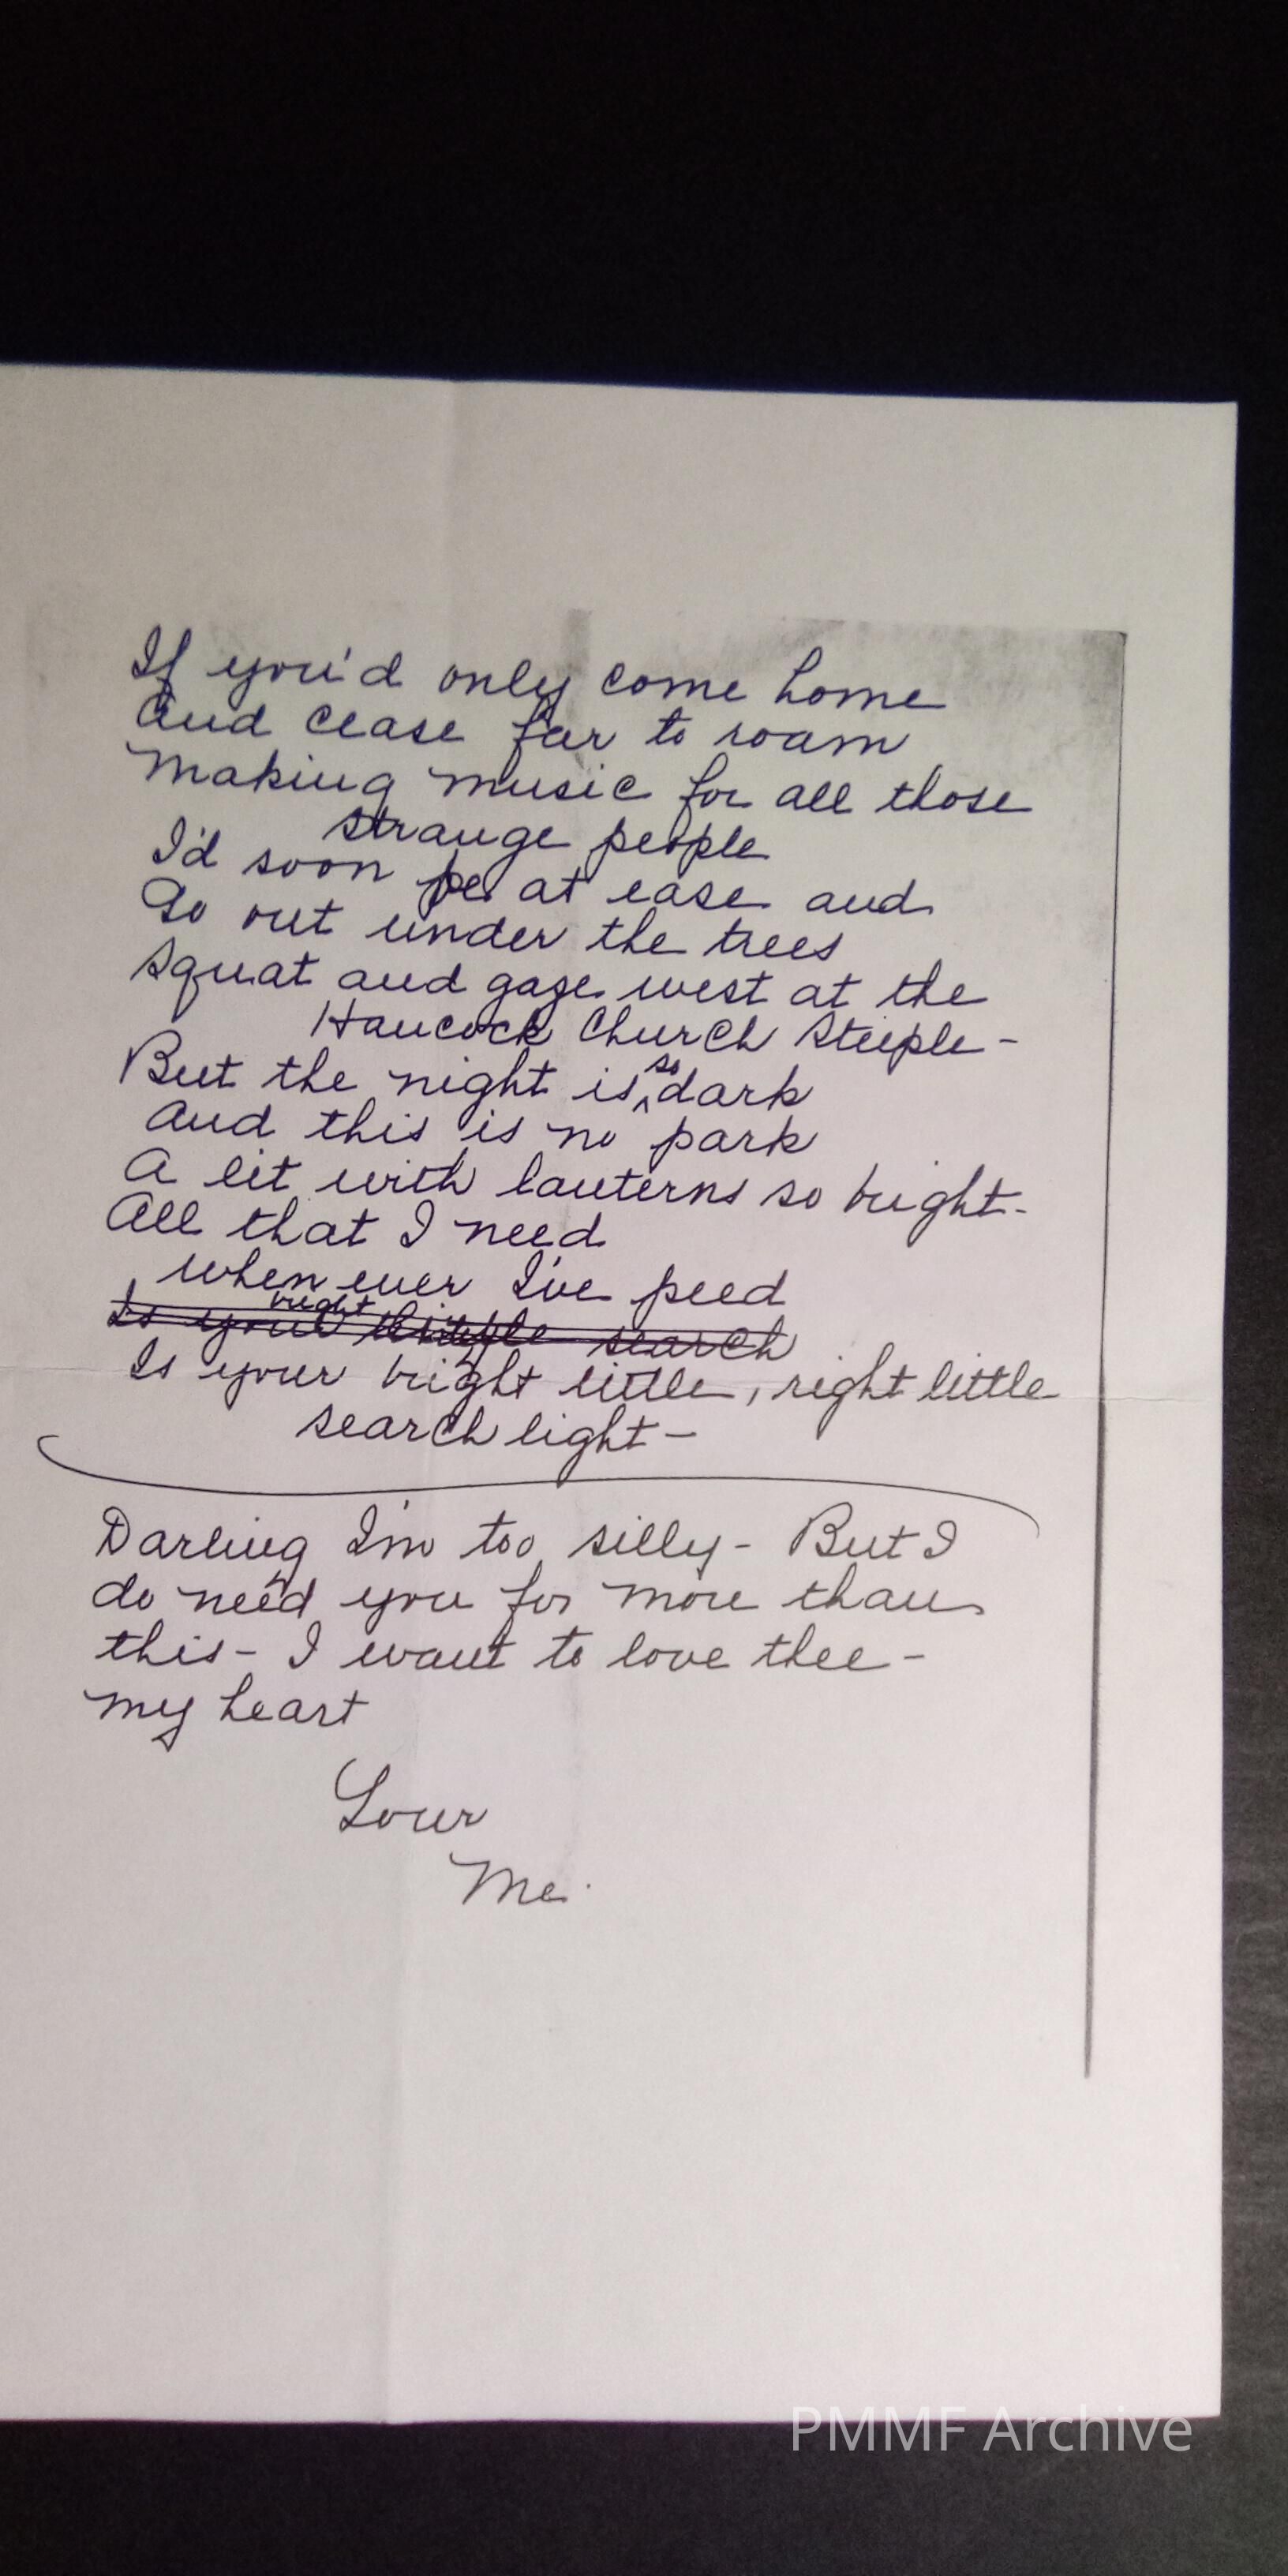 If you'd only come home
And cease far to roam
Making music for all those
strange people
I'd soon be at ease and
Go out under the trees
Squat and gaze west at the
Hancock Church Steeple -
But the night is so dark
And this is no park
A lit with lanterns so bright -
All that I need
when ever I've peed
Is your bright little search
Is your bright little, right little
search light -
Darling I'm too silly - But I
do need you for more than
this - I want to love thee -
my heart
Your
Me.
PMMF Archive